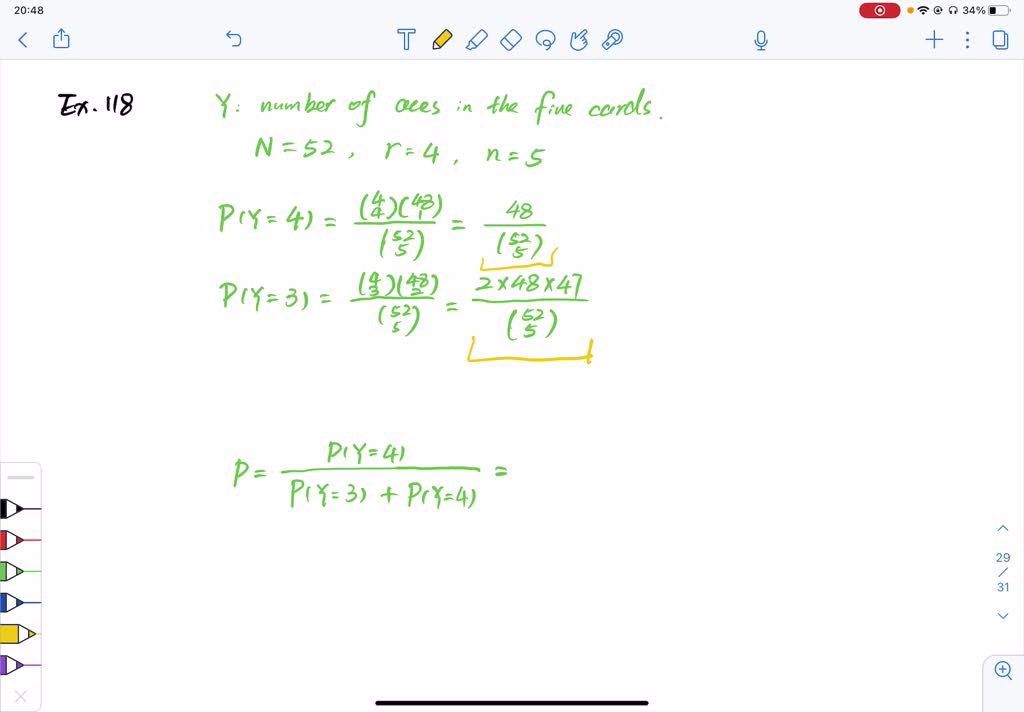 20:48
34%
Ex. 118
Y: number of aces in the five cards.
N = 52, r = 4, n = 5
P(Y = 4) = (4 4)(48 1) / (52 5) = 48 / (52 5)
P(Y = 3) = (4 3)(48 2) / (52 5) = 2×48×47 / (52 5)
P = P(Y=4) / P(Y=3) + P(Y=4) =
29
/
31